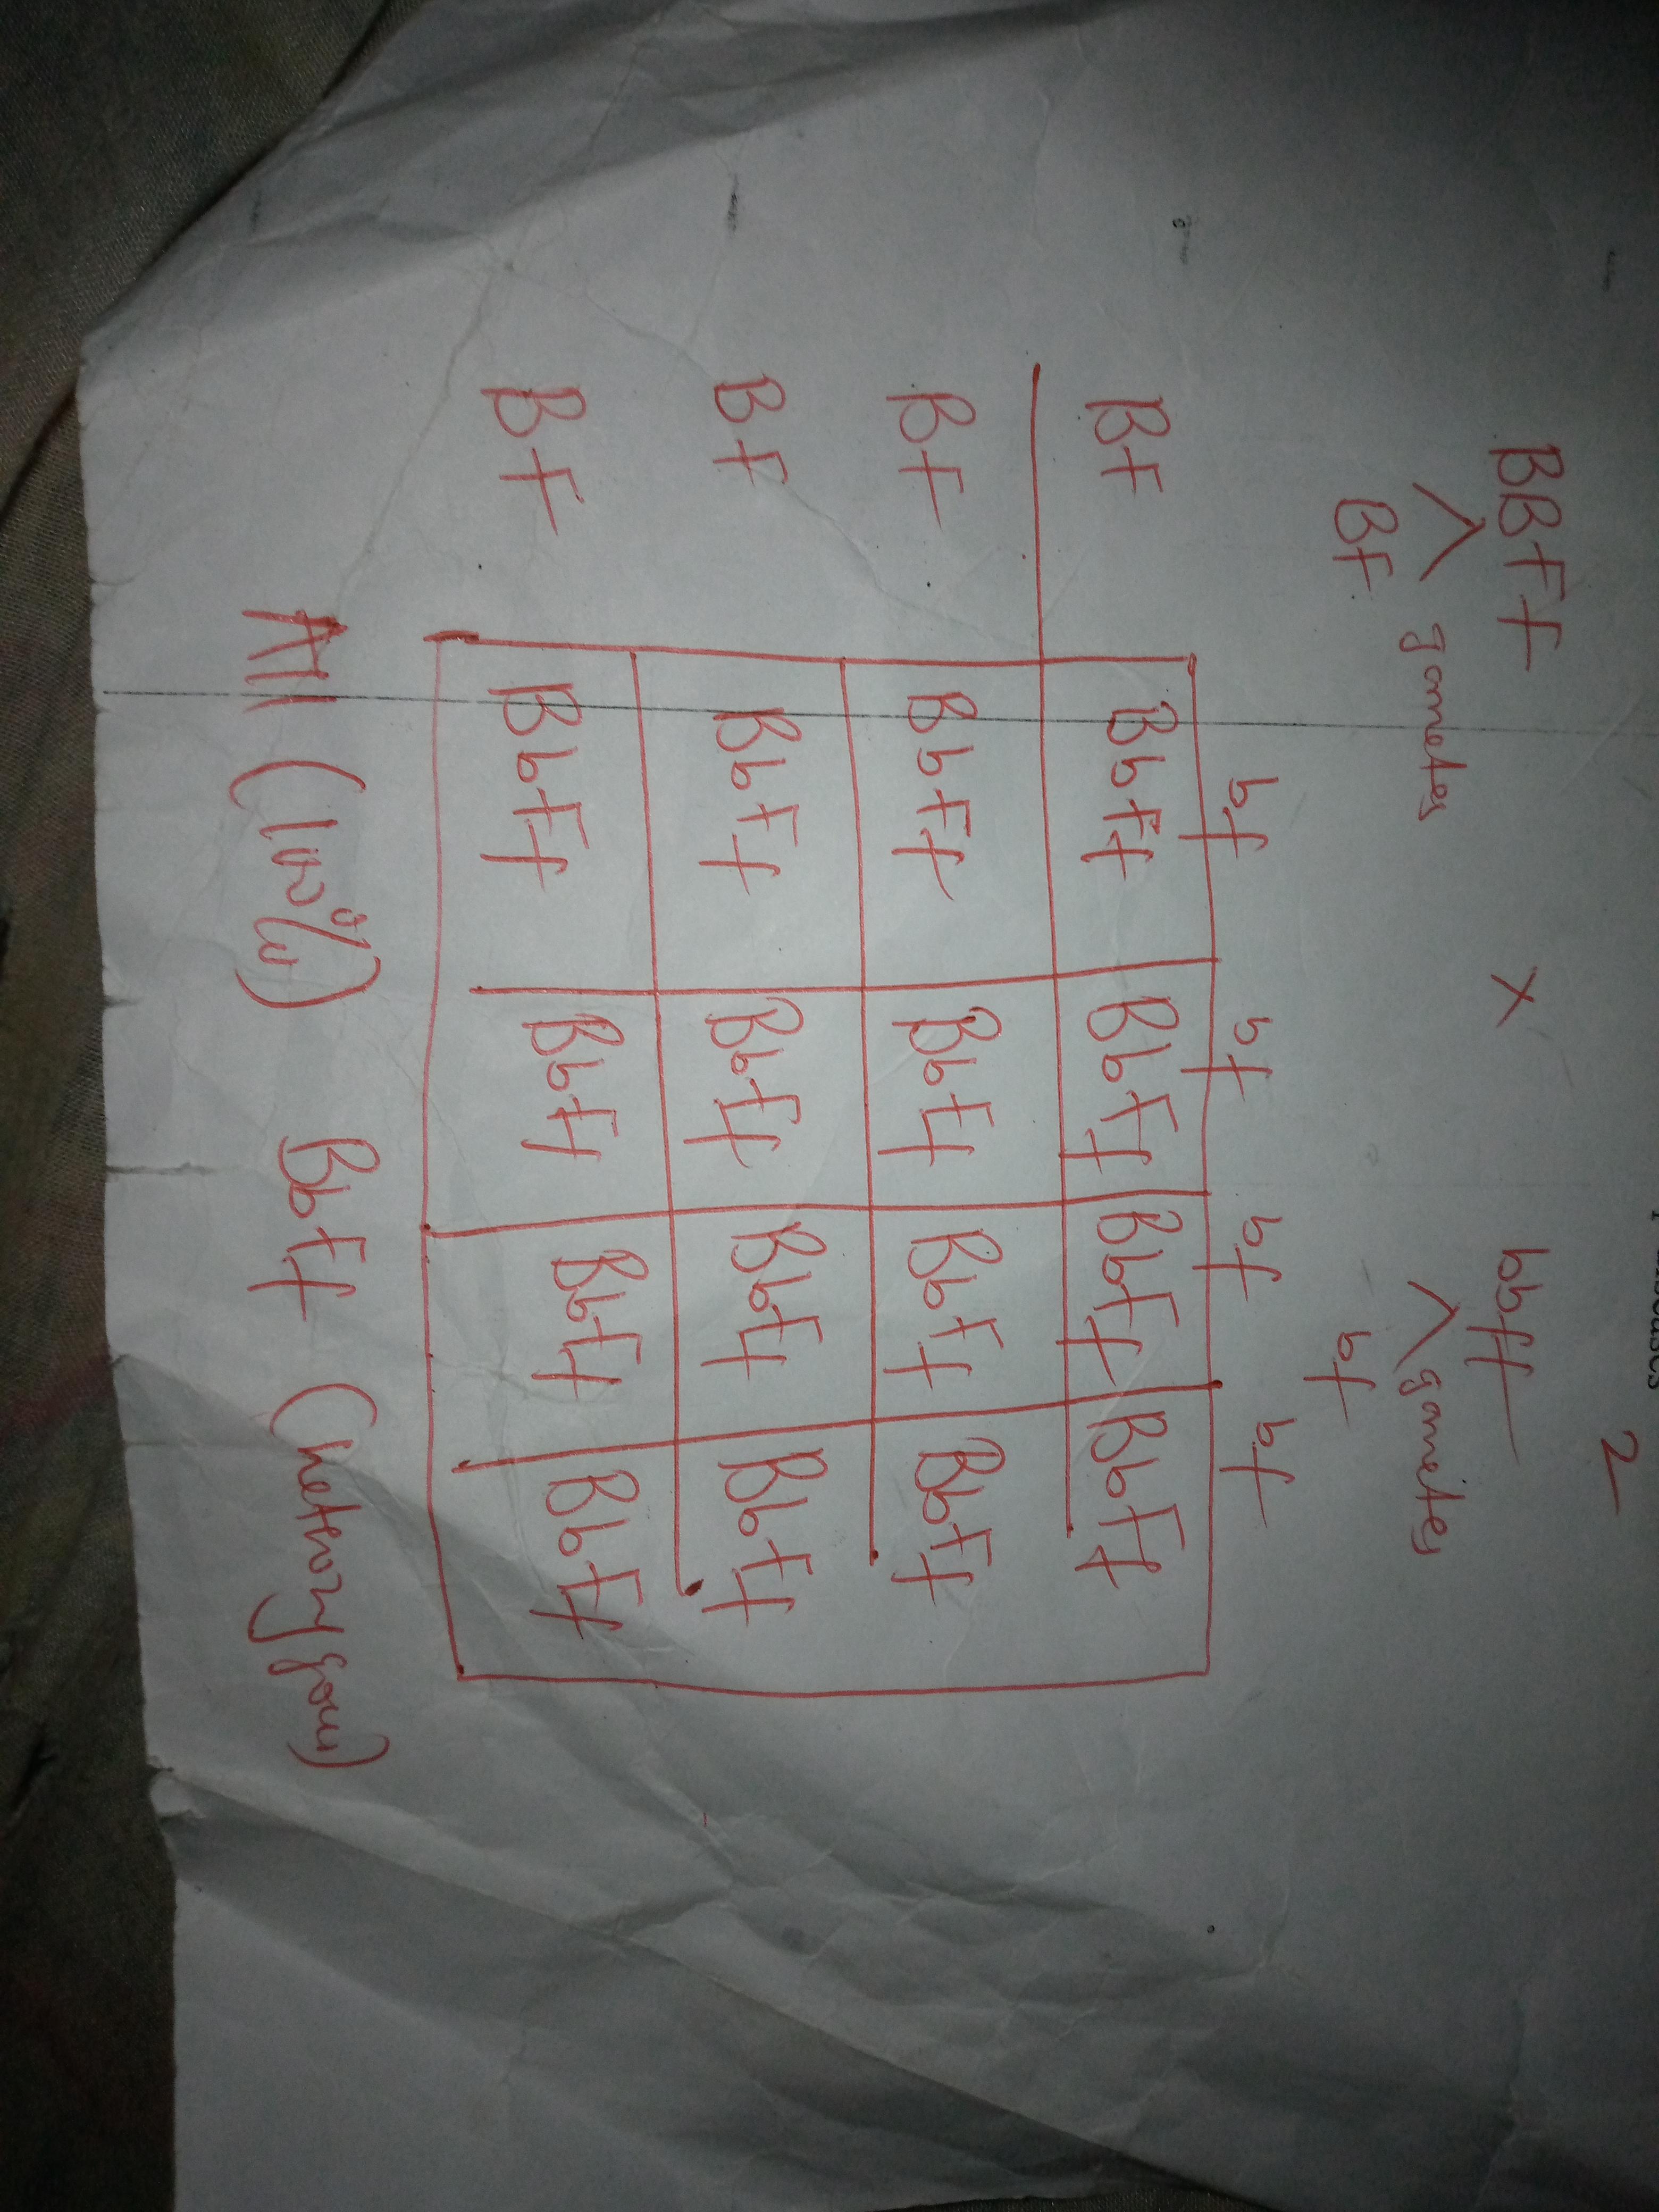 2
BBFF × bbff
gametes gametes
BF bf
bf bf bf bf
BF BbFf BbFf BbFf BbFf
BF BbFf BbFf BbFf BbFf
BF BbFf BbFf BbFf BbFf
BF BbFf BbFf BbFf BbFf
All (100%) BbFf (heterozygous)